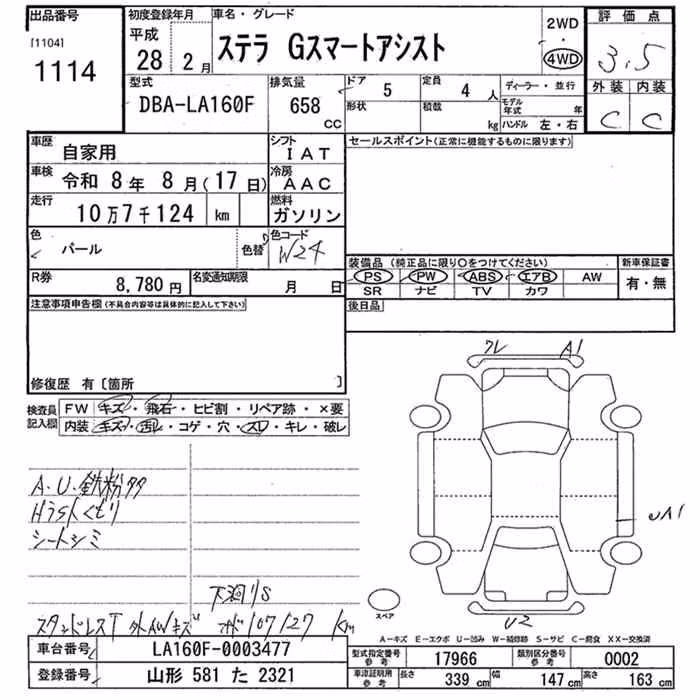 出品番号 初度登録年月 車名・グレード 評価点
[1104] 1114 平成 28 2月 ステラ Gスマートアシスト 2WD ・ 4WD 3.5
型式 排気量 ドア 5 定員 4人 ディーラー・並行 外装 内装
DBA-LA160F 658 CC 形状 積載 kg モデル年式 年 ハンドル 左・右 C C
車歴 自家用 シフト IAT セールスポイント(正常に機能するものに限ります)
車検 令和 8年 8月(17日) 冷房 AAC
走行 10万7千124 km 燃料 ガソリン
色 パール 色替 色コード W24
装備品(純正品に限り○をつけてください) 新車保証書
R券 8,780円 名変通知期限 月 日 PS PW ABS エアB AW 有・無
SR ナビ TV カワ
注意事項申告欄(不具合内容等は具体的に記入して下さい) 後日品
修復歴 有〔箇所 〕
検査員記入欄 FW キズ・飛石・ヒビ割・リペア跡・×要
内装 キズ・汚レ・コゲ・穴・スレ・キレ・破レ
A1
A・U・鉄粉タタ
Hライトくもり
シートシミ
UA1
下廻りS
スペア
U2
107127 Km
A−キズ E−エクボ U−凹み W−補修跡 S−サビ C−腐食 XX−交換済
車台番号 LA160F-0003477 型式指定番号 参考 17966 類別区分番号 参考 0002
登録番号 山形 581 た 2321 車庫証明用 参考 長さ 339 cm 幅 147 cm 高さ 163 cm